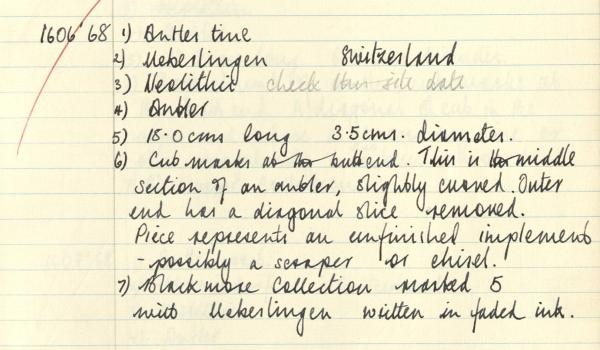 1606'68 1) Antler tine
2) Ueberlingen Switzerland
3) Neolithic check this site date
4) Antler
5) 15.0cms long 3.5cms. diameter.
6) Cut marks at the butt end. This is the middle
section of an antler, slightly curved. Outer
end has a diagonal slice removed.
Piece represents an unfinished implement
- possibly a scraper or chisel.
7) Blackmore Collection marked 5
with Ueberlingen written in faded ink.